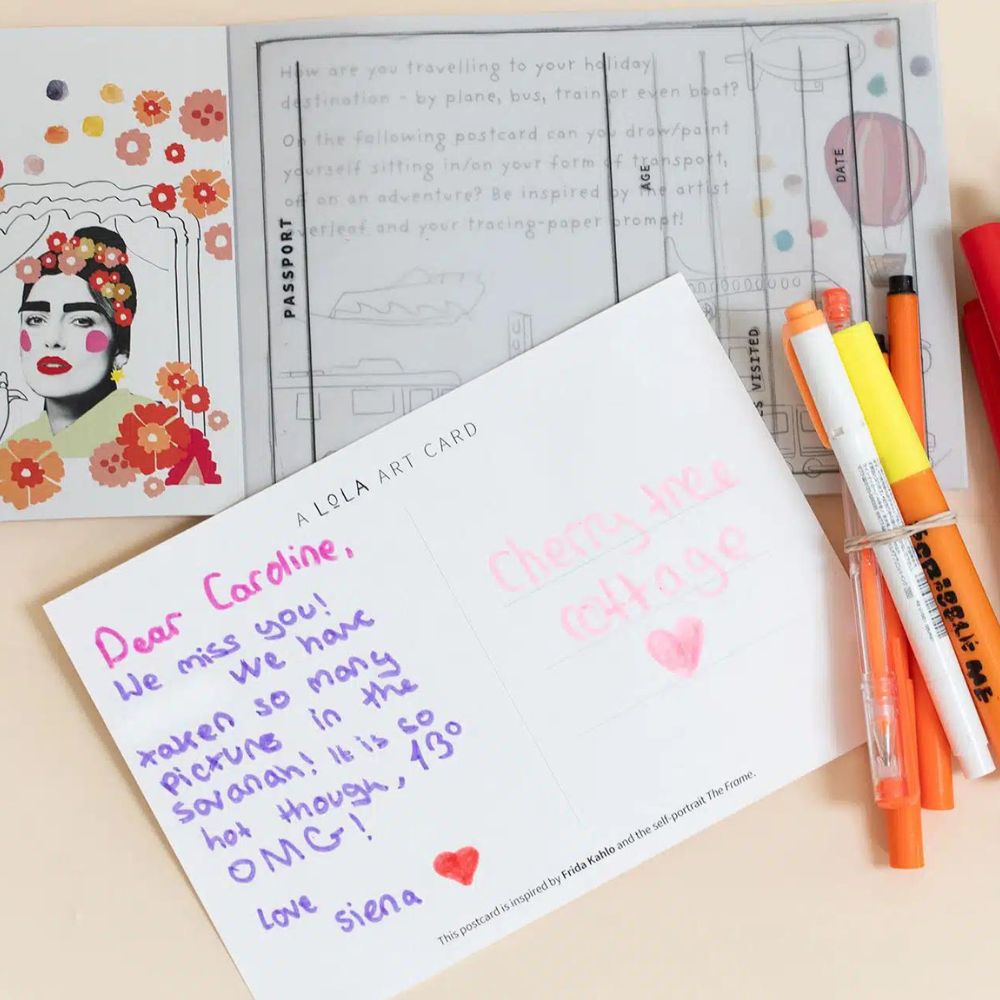 How are you travelling to your holiday
destination - by plane, bus, train or even boat?
On the following postcard can you draw/paint
yourself sitting in/on your form of transport,
off on an adventure? Be inspired by the artist
overleaf and your tracing-paper prompt!
PASSPORT
AGE
DATE
VISITED
A LOLA ART CARD
Dear Caroline,
We miss you!
We have
taken so many
picture in the
Savanah! It is so
hot though, 43°
OMG!
Love siena
Cherry tree
cottage
This postcard is inspired by Frida Kahlo and the self-portrait The Frame.
SCRIBBLE ME